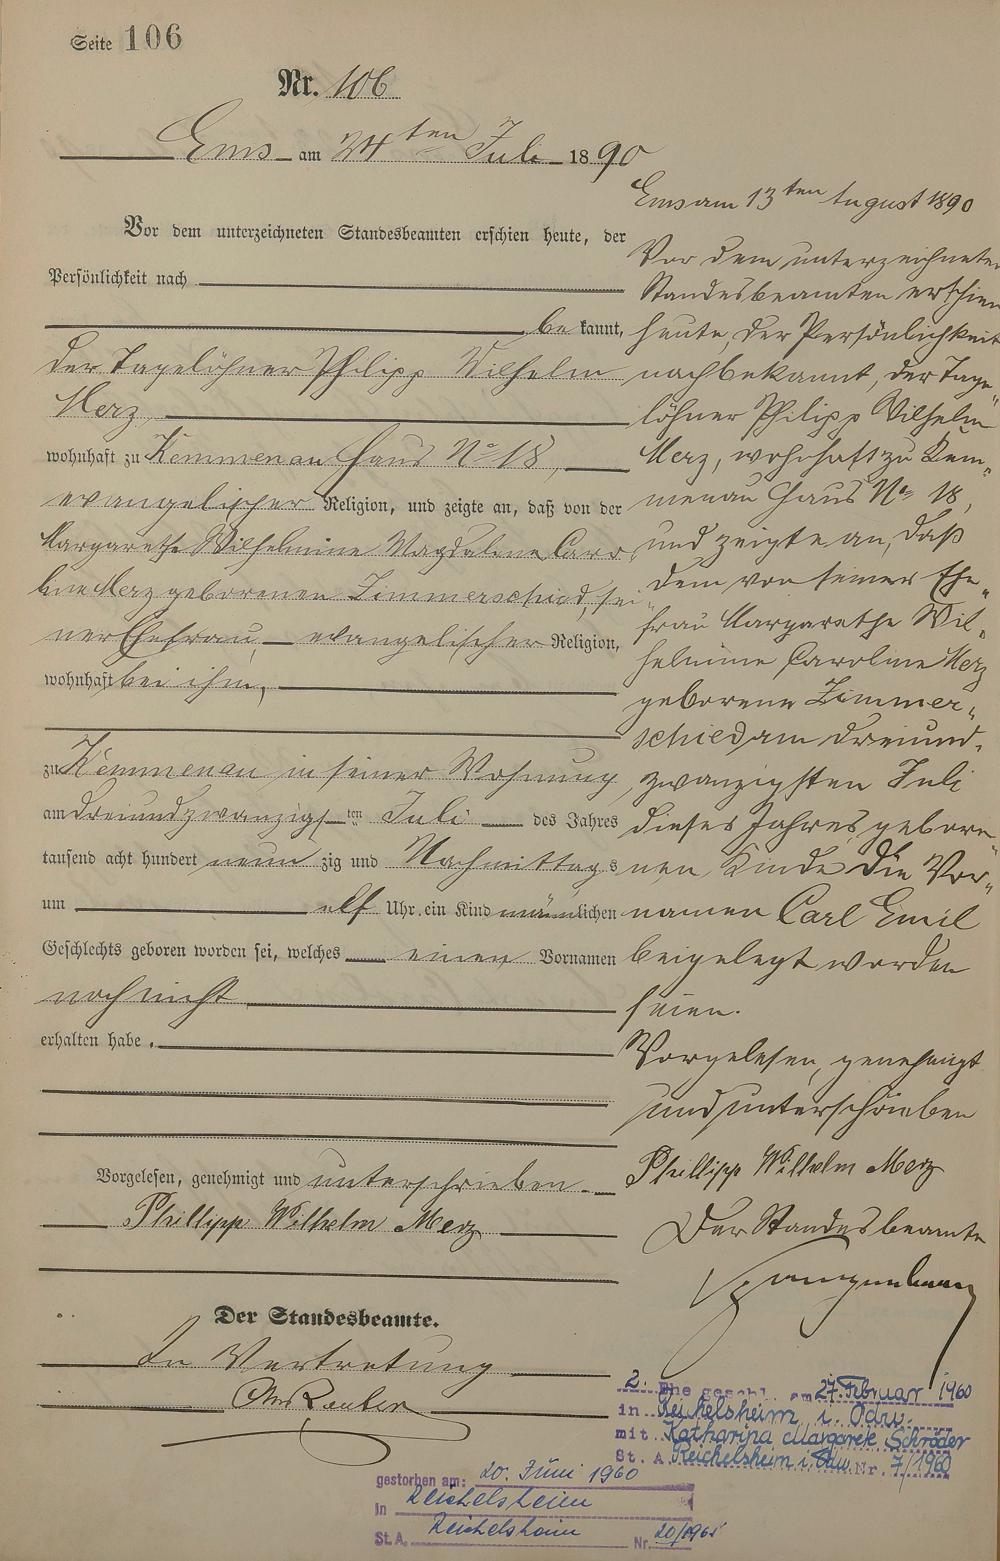 Seite 106
Nr. 106
Ems am 24ten Juli 1890
Vor dem unterzeichneten Standesbeamten erschien heute, der
Persönlichkeit nach
bekannt,
der Tagelöhner Philipp Wilhelm
Merz,
wohnhaft zu Kemmenau Haus No 18,
evangelischer Religion, und zeigte an, daß von der
Margarethe Wilhelmine Magdalena Caro
line Merz geborenen Zimmerschied, sei„
ner Ehefrau, evangelischer Religion,
wohnhaft bei ihm,
zu Kemmenau in seiner Wohnung,
am dreiundzwanzigsten Juli des Jahres
tausend acht hundert neunzig und Nachmittags
um elf Uhr ein Kind männlichen
Geschlechts geboren worden sei, welches einen Vornamen
noch nicht
erhalten habe.
Vorgelesen, genehmigt und unterschrieben.
Phillipp Wilhelm Merz
Der Standesbeamte.
In Vertretung
Ems am 13ten August 1890
Vor dem unterzeichneten
Standesbeamten erschien
heute, der Persönlichkeit
nach bekannt, der Tage„
löhner Philipp Wilhelm
Merz, wohnhaft zu Kem„
menau Haus No 18,
und zeigte an, daß
dem von seiner Ehe„
frau Margarethe Wil„
helmine Caroline Merz
geborene Zimmer„
schied am dreiund„
zwanzigsten Juli
dieses Jahres gebore„
nen Kinde die Vor„
namen Carl Emil
beigelegt worden
seien.
Vorgelesen, genehmigt
und unterschrieben
Phillipp Wilhelm Merz
Der Standesbeamte
2. Ehe geschl. am 27. Februar 1960
in Reichelsheim i. Odw.
mit Katharina Margarete Schröder
St. A. Reichelsheim i. Odw. Nr. 7/1960
gestorben am: 20. Juni 1960
in Reichelsheim
St.A. Reichelsheim Nr.